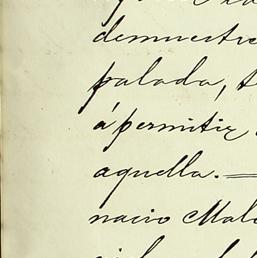 demuestre
palada, t
á permitir
aquella. —
nacio Mal